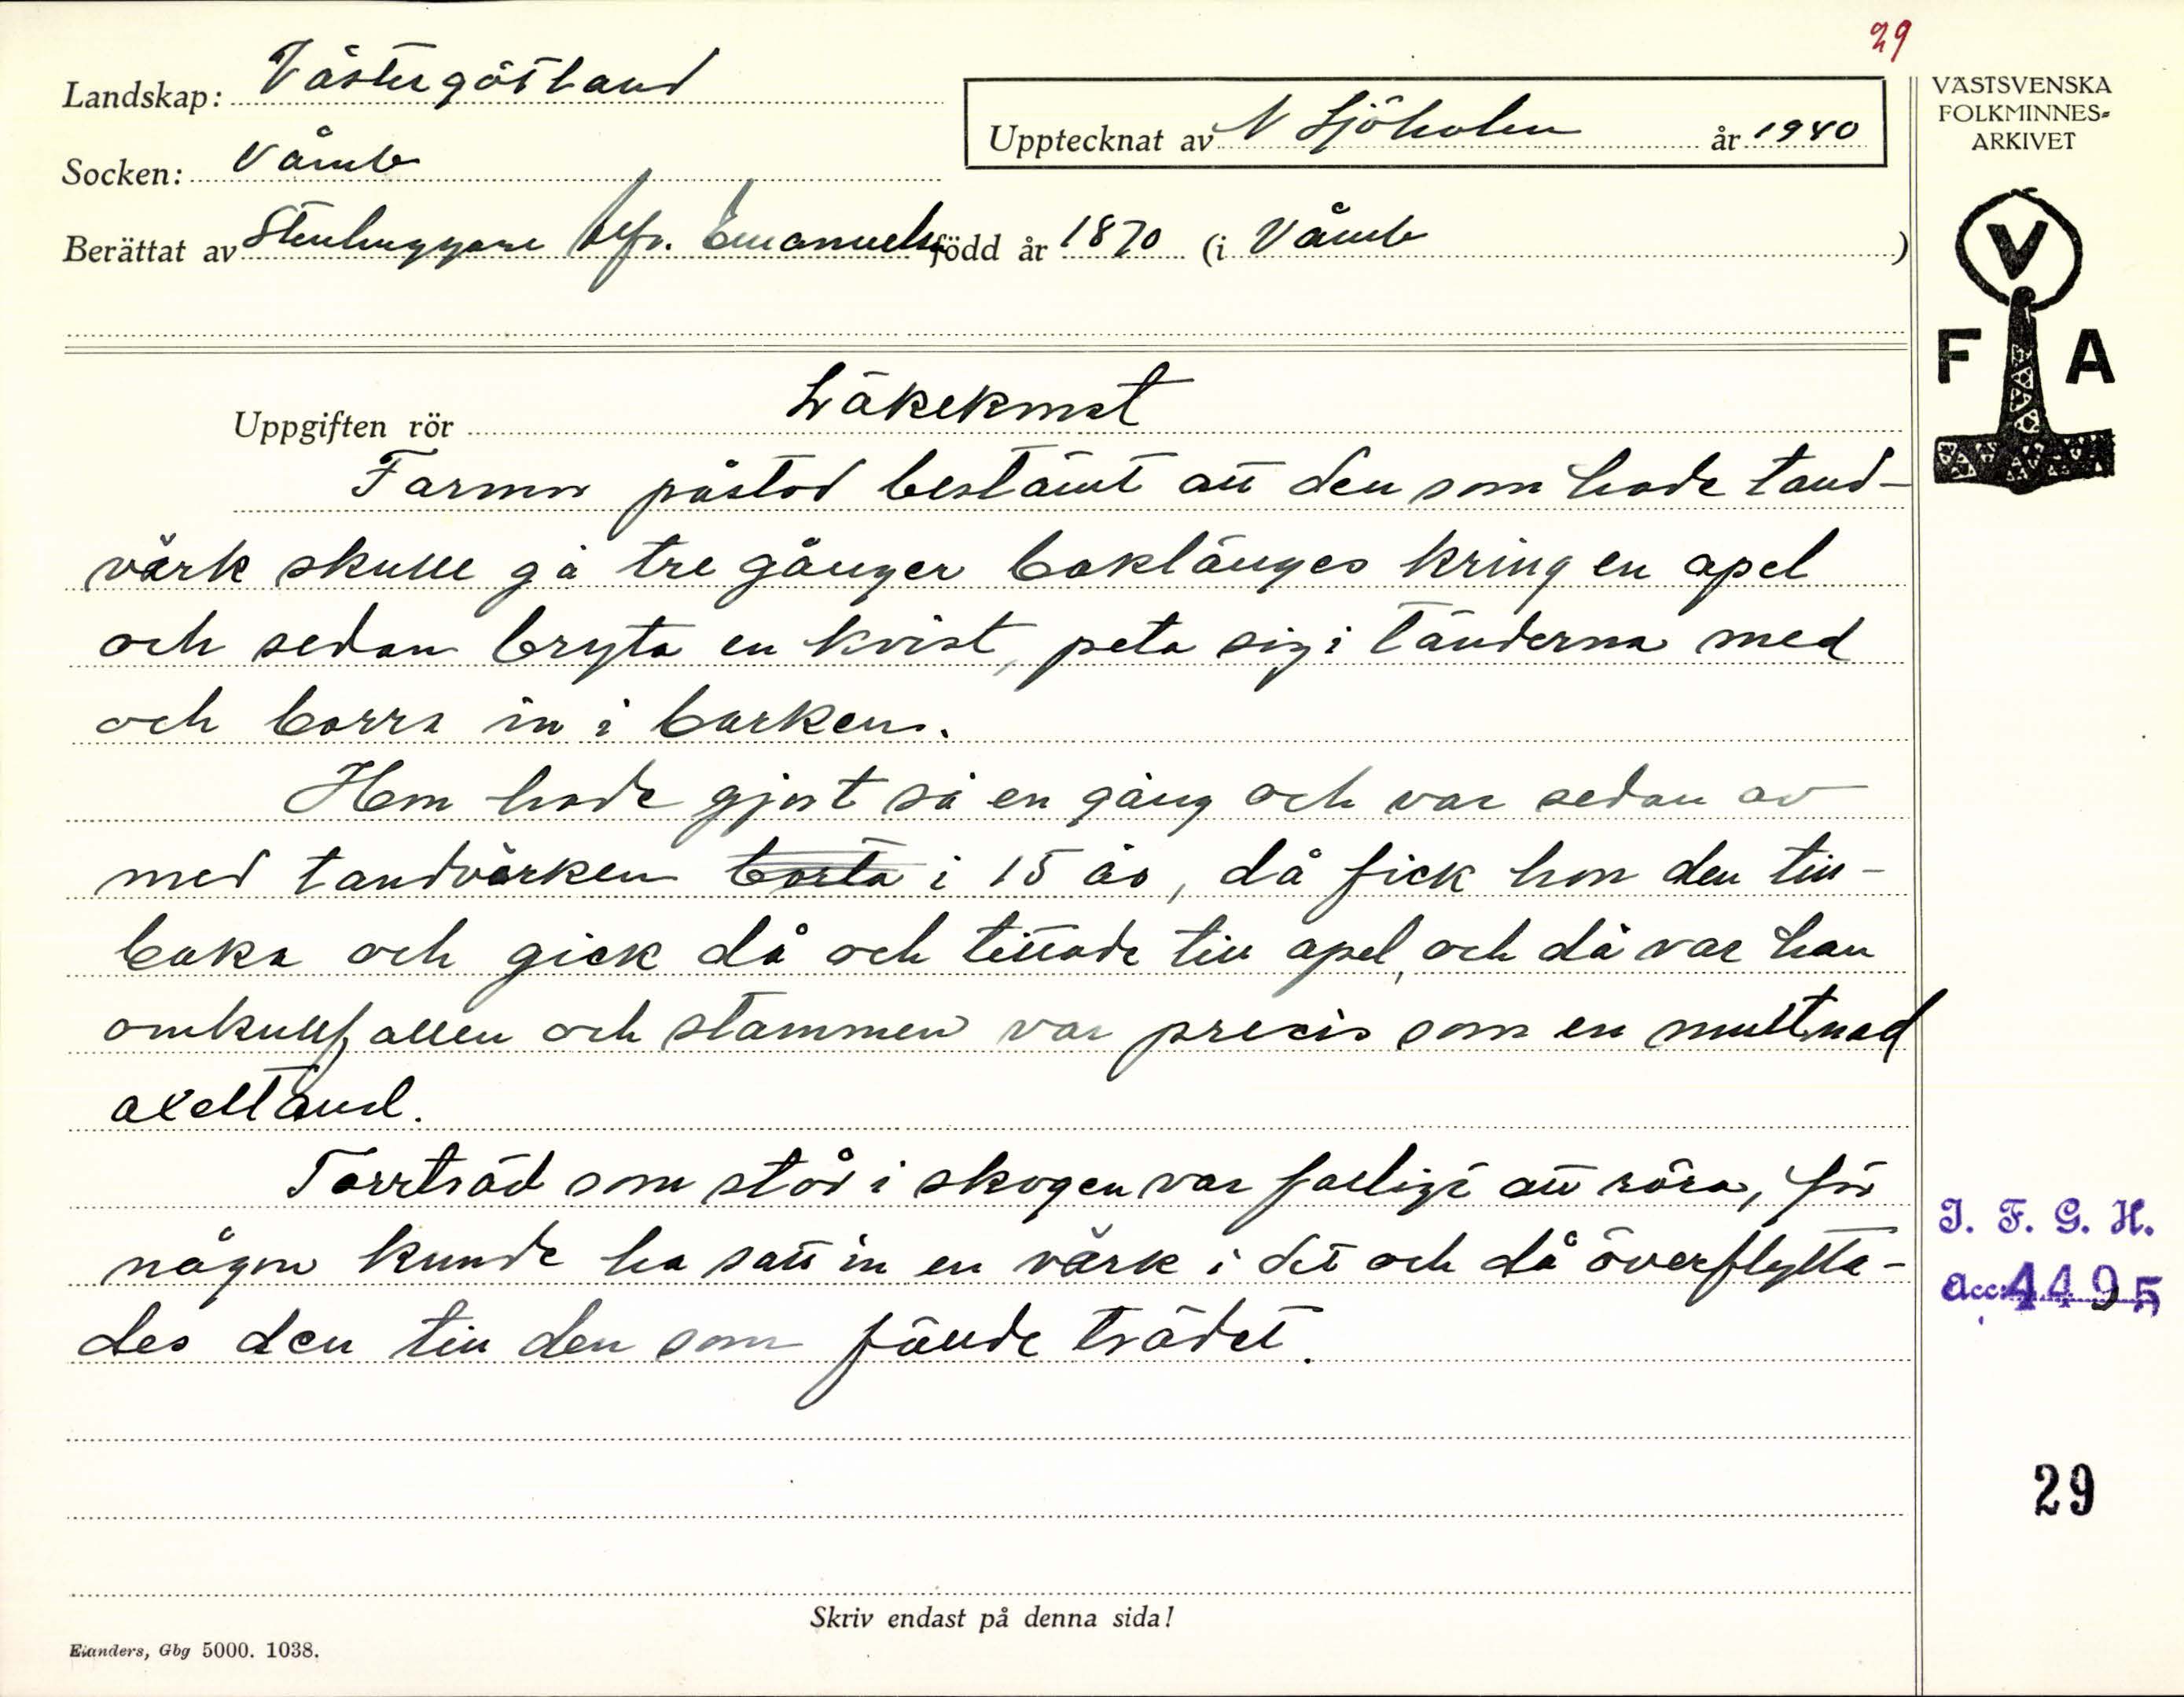 29
Landskap: Västergötland
Upptecknat av N Sjöholm år 1940
VÄSTSVENSKA
FOLKMINNES-
ARKIVET
Socken: Våmb
Berättat av Stenhuggare Alfr. Emanuels född år 1870 (i Våmb)
V
F A
Uppgiften rör Läkekonst
Farmor påstod bestämt att den som hade tand-
värk skulle gå tre gånger baklänges kring en apel
och sedan bryta en kvist, peta sig i tänderna med
och borra in i barken.
Hon hade gjort så en gång och var sedan av
med tandvärken borta i 15 år, då fick hon den till-
baka och gick då och tittade till apel, och då var han
omkullfallen och stammen var precis som en multnad
axeltand.
Torrträd som står i skogen var farligt att röra, för
någon kunde ha satt in en värk i det och då överflytta-
des den till den som fällde trädet.
I. F. G. H.
Acc: 4495
29
Skriv endast på denna sida!
Elanders, Gbg 5000. 1038.